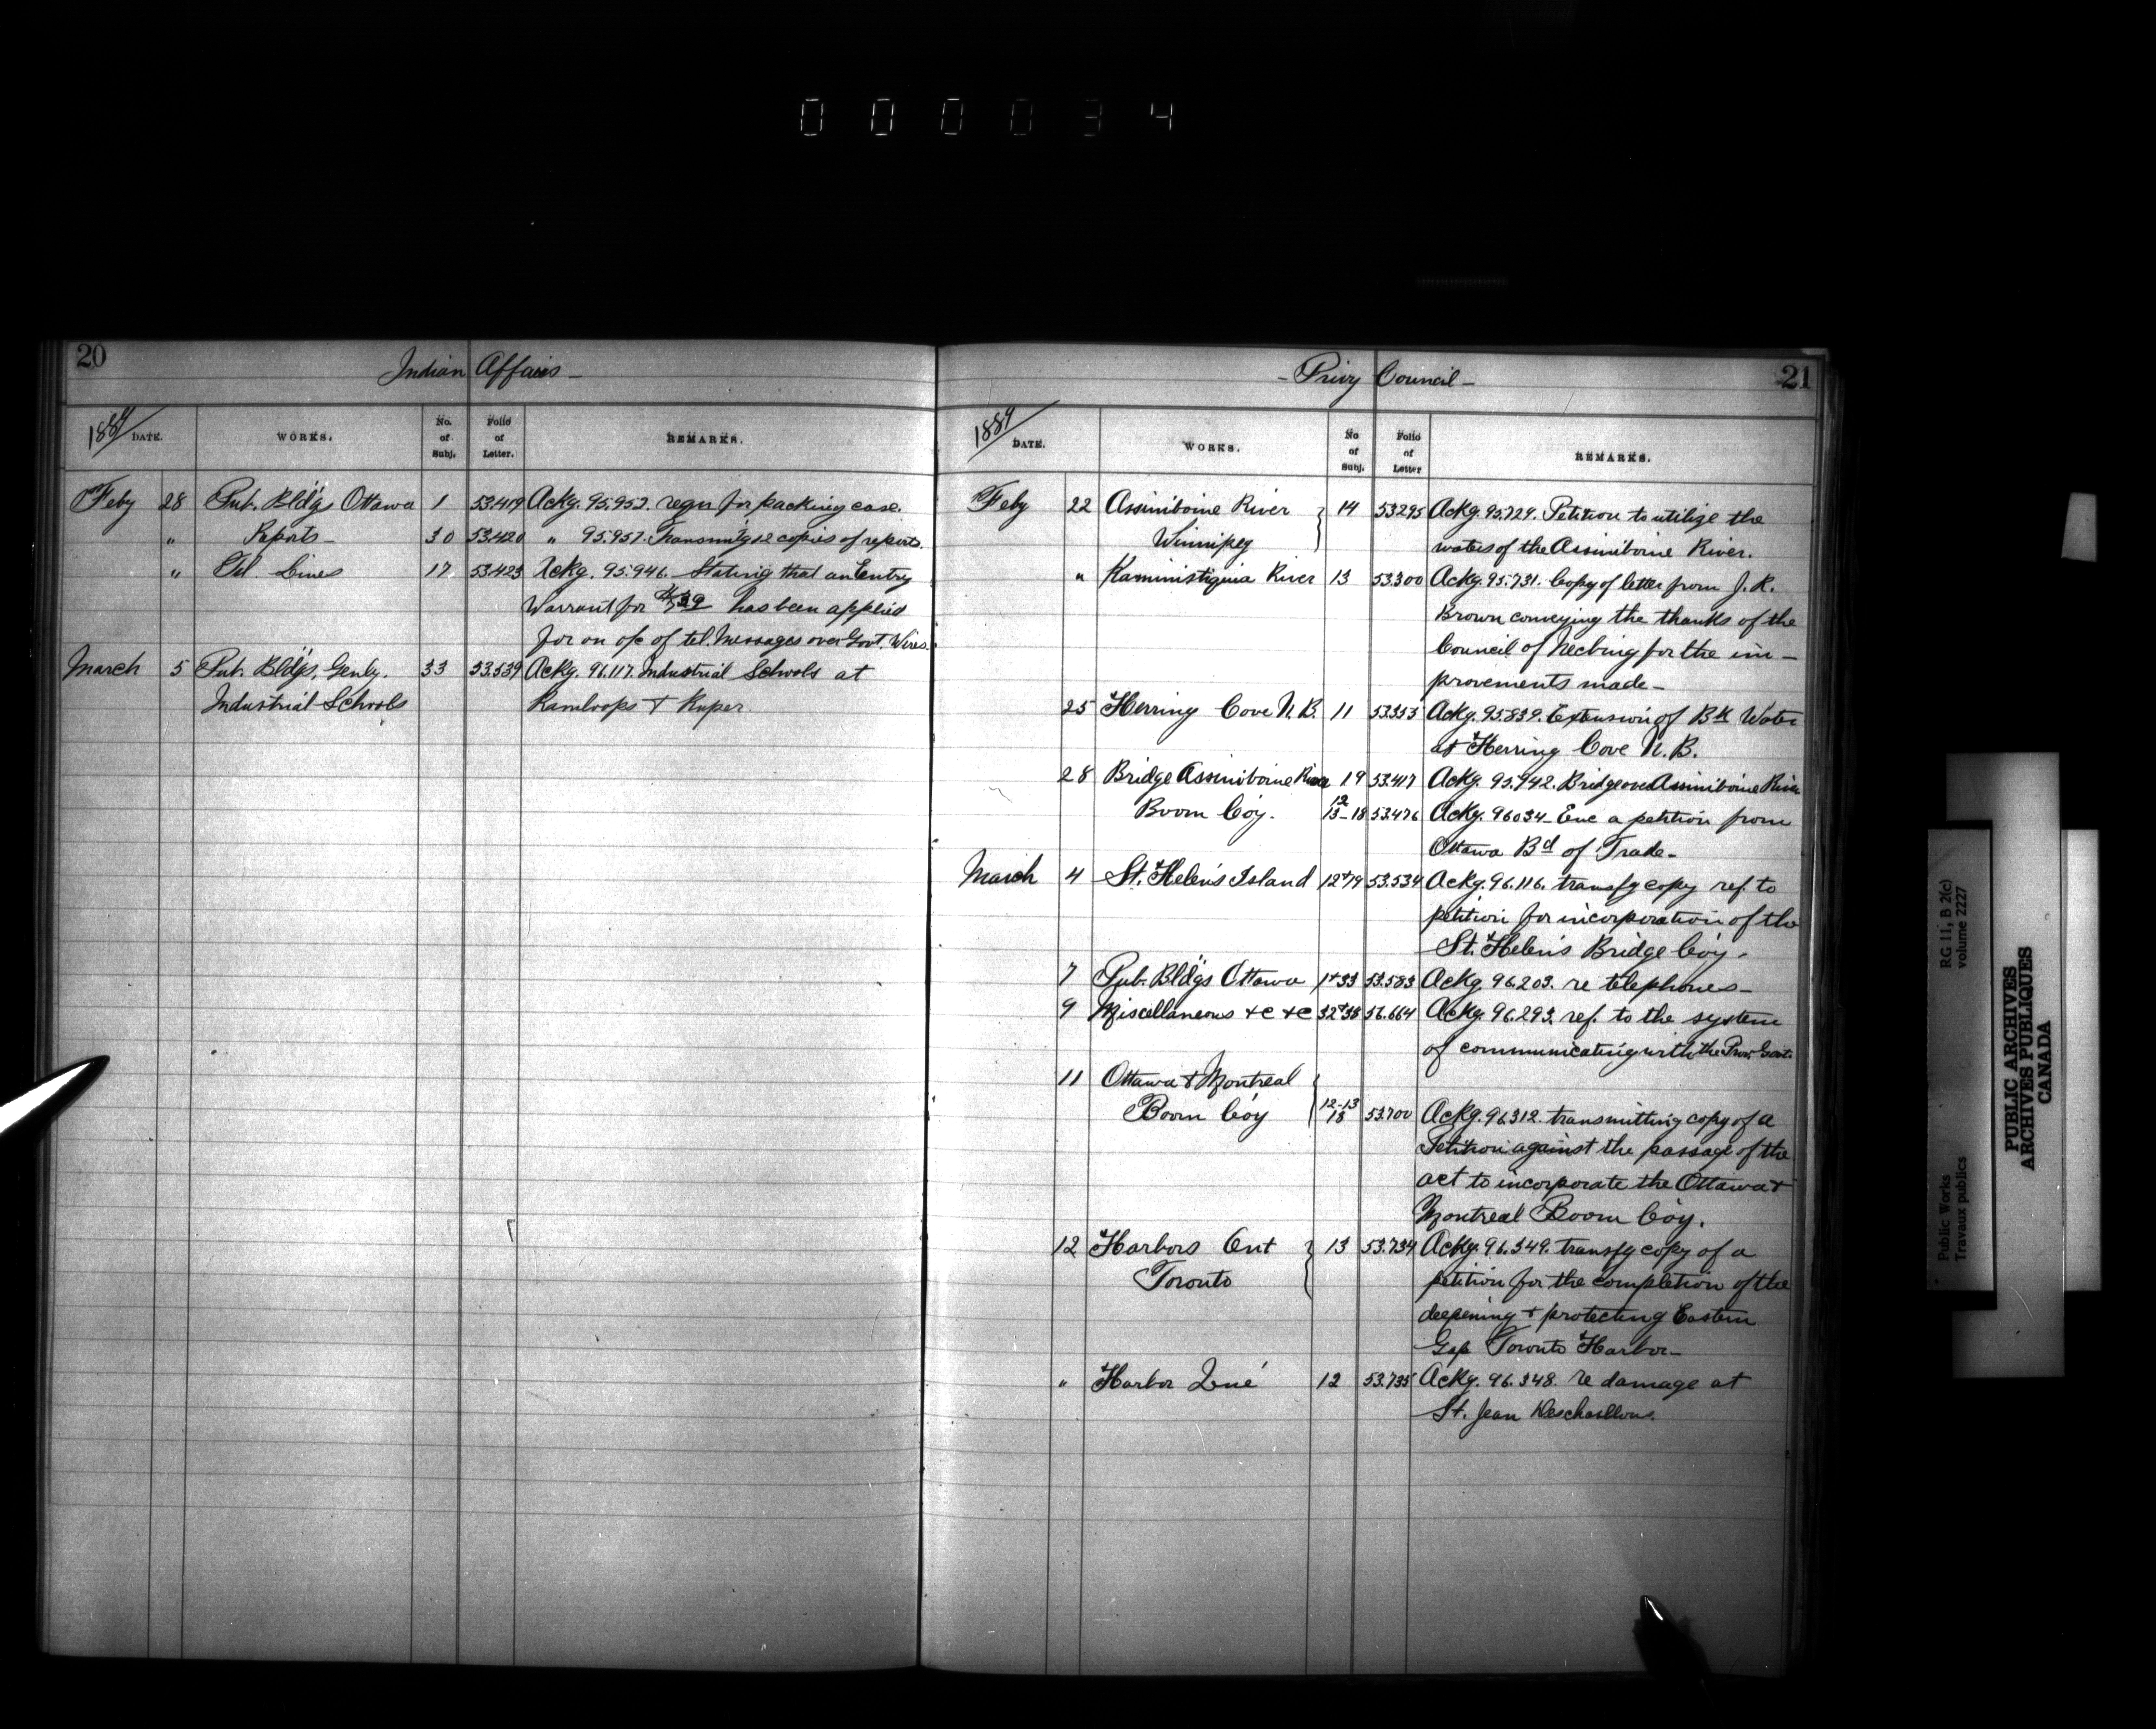 000034
20
Indian Affairs –
1889 DATE. WORKS. No. of Subj. Folio of Letter. REMARKS.
Feby 28 Pub. Bld'gs Ottawa 1 53.419 Ackg. 95.952. reqn for packing case.
" Reports – 30 53.420 " 95.957. Transmit'g 12 copies of reports.
" Tel. Lines 17 53.423 Ackg. 95.946. Stating that an Entry
Warrant for has been applied
for on a/c of tel. Messages over Govt. Wires.
March 5 Pub. Bld'gs, Genly. 33 53.539 Ackg. 96.117. Industrial Schools at
Industrial Schools Kamloops & Kuper
– Privy Council – 21
1889 DATE. WORKS. No of Subj. Folio of Letter REMARKS.
Feby 22 Assiniboine River 14 53295 Ackg. 95.729. Petition to utilize the
Winnipeg waters of the Assiniboine River.
" Kaministiquia River 13 53.300 Ackg. 95.731. Copy of letter from J. R.
Brown conveying the thanks of the
Council of Neebing for the im –
provements made –
25 Herring Cove N.B. 11 53.353 Ackg. 95.839. Extension of Bk Water
at Herring Cove N.B.
28 Bridge Assiniboine River 19 53.417 Ackg. 95.942. Bridge over Assiniboine River
Boom Co'y. 12 13–18 53.476 Ackg. 96034 – Enc a petition from
Ottawa Bd of Trade –
March 4 St. Helen's Island 12+19 53.534 Ackg. 96.116. transfg copy ref. to
petition for incorporation of the
St. Helen's Bridge Co'y.
7 Pub. Bld'gs Ottawa 1+33 53.583 Ackg. 96.203. re telephones –
9 Miscellaneous &c &c 32+38 56.664 Ackg. 96.293 ref. to the system
of communicating with the Prov. Govts.
11 Ottawa & Montreal
Boom Co'y 12–13 18 53.700 Ackg. 96312. transmitting copy of a
Petition against the passage of the
act to incorporate the Ottawa &
Montreal Boom Co'y.
12 Harbors Ont 13 53.734 Ackg. 96.349. transfg copy of a
Toronto petition for the completion of the
deepening & protecting Eastern
Gap Toronto Harbor –
" Harbor Qué 12 53.735 Ackg. 96.348. re damage at
St. Jean Deschaillons.
Public Works RG 11, B 2(c)
Travaux publics volume 2227
PUBLIC ARCHIVES
ARCHIVES PUBLIQUES
CANADA